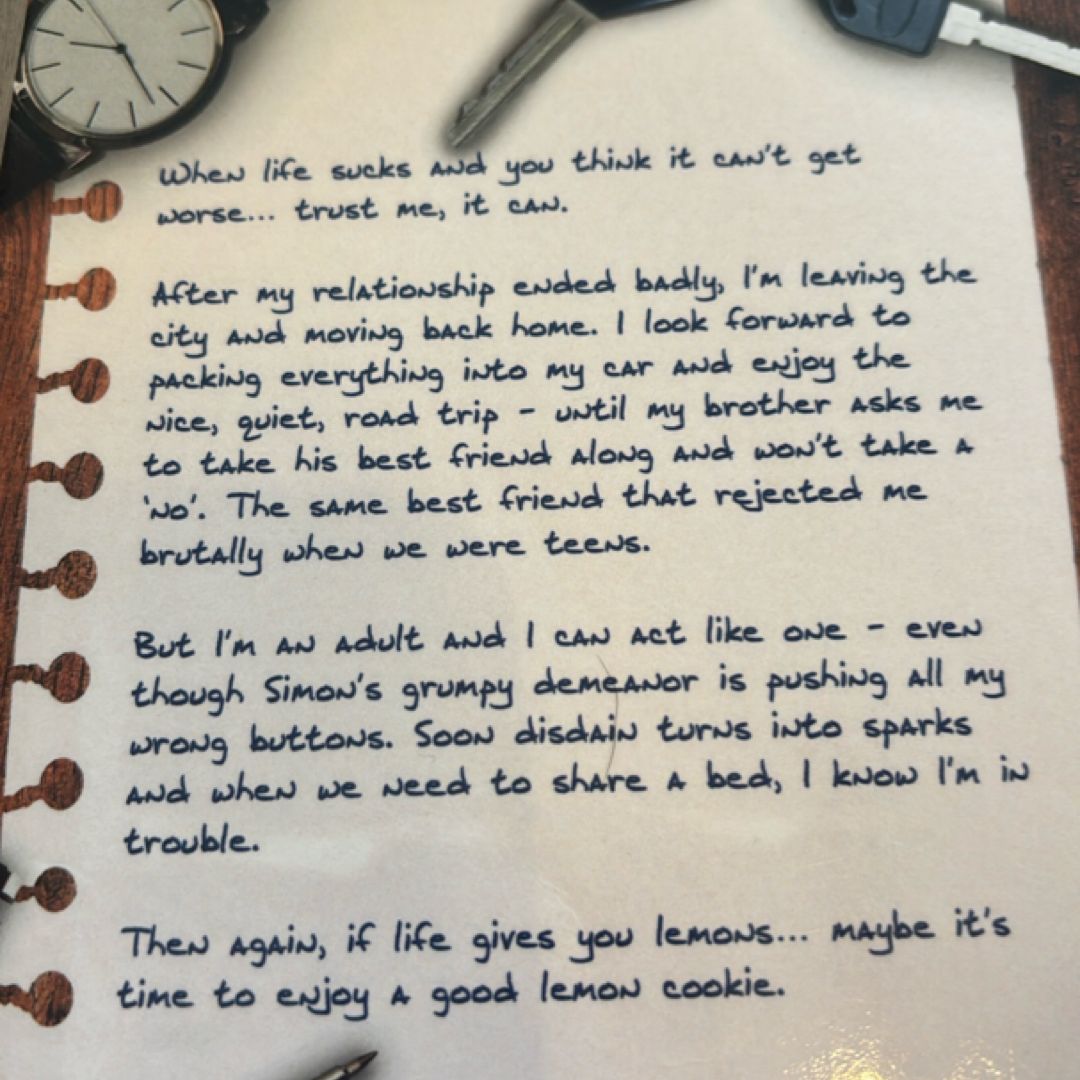 When life sucks and you think it can't get
worse... trust me, it can.
After my relationship ended badly, I'm leaving the
city and moving back home. I look forward to
packing everything into my car and enjoy the
nice, quiet, road trip - until my brother asks me
to take his best friend along and won't take a
'no'. The same best friend that rejected me
brutally when we were teens.
But I'm an adult and I can act like one - even
though Simon's grumpy demeanor is pushing all my
wrong buttons. Soon disdain turns into sparks
and when we need to share a bed, I know I'm in
trouble.
Then again, if life gives you lemons... maybe it's
time to enjoy a good lemon cookie.